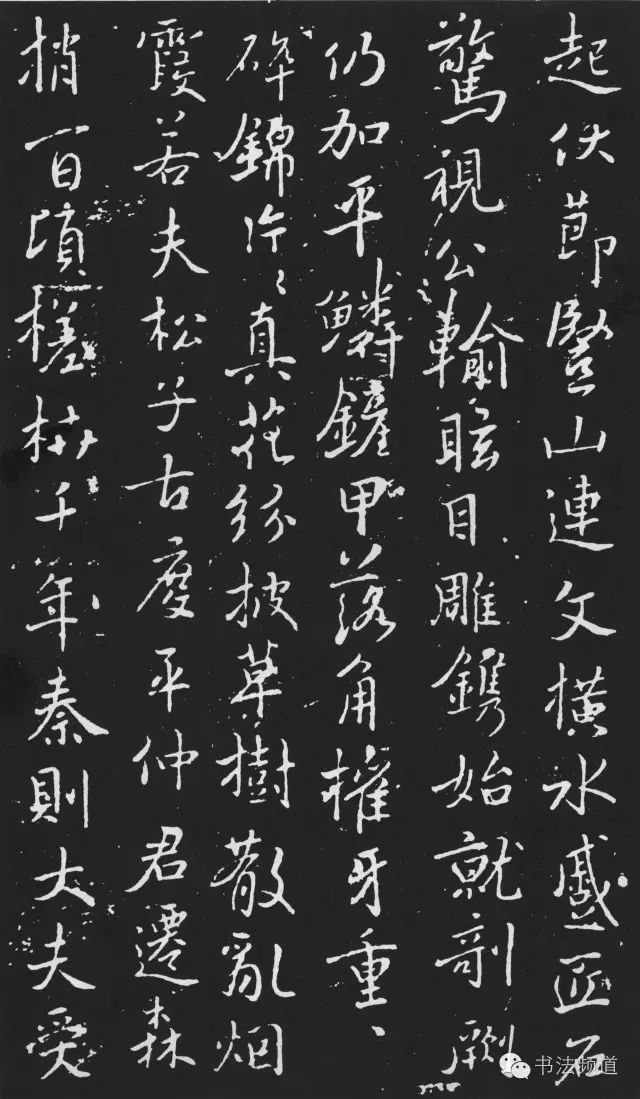 起伏節豎山連文橫水蹙匠石
驚視公輸眩目雕鐫始就剞劂
仍加平鱗鏟甲落角摧牙重〻
碎錦片〻真花紛披草樹散亂烟
霞若夫松子古度平仲君遷森
梢百頃槎枿千年秦則大夫受
书法频道